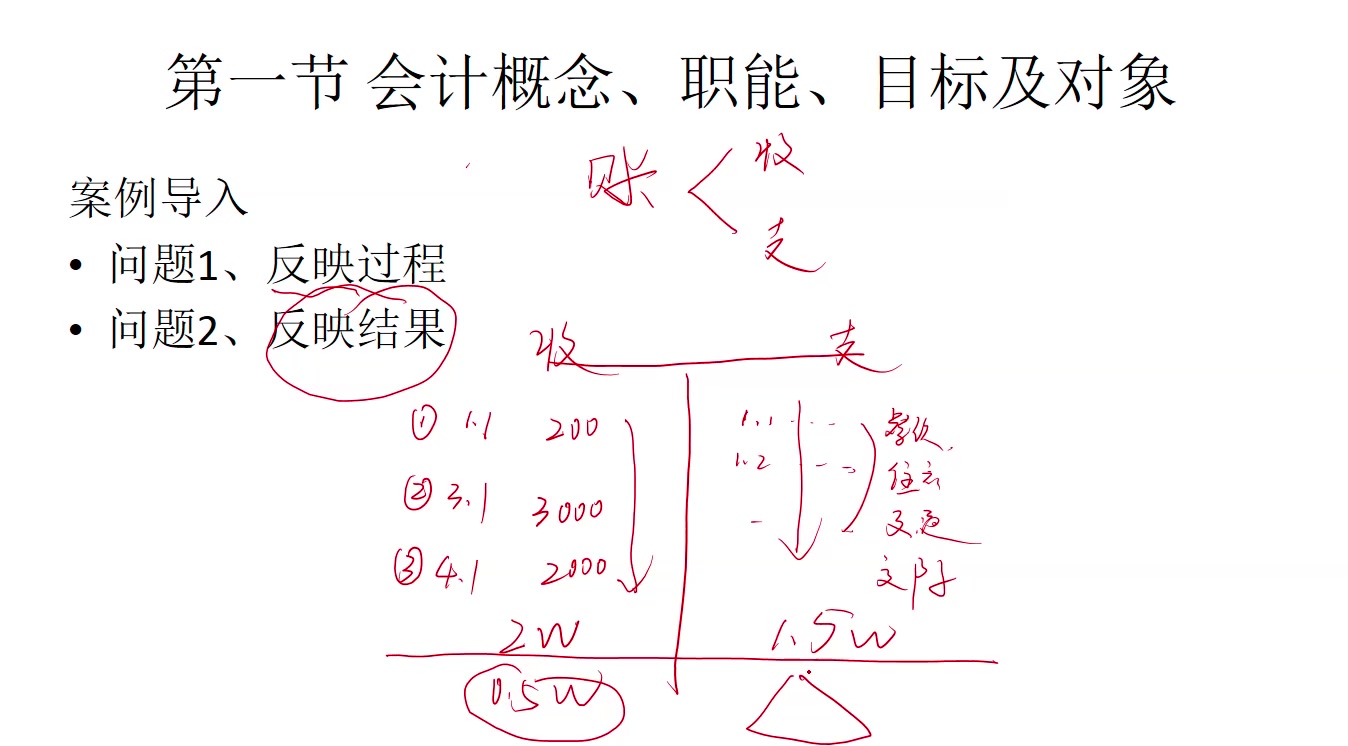 第一节 会计概念、职能、目标及对象
账 收
支
案例导入
• 问题1、反映过程
• 问题2、反映结果
收 支
① 1.1 200 1.1 ... 餐饮
② 3.1 3000 1.2 -- 住宿
交通
③ 4.1 2000
2W 1.5W
0.5W